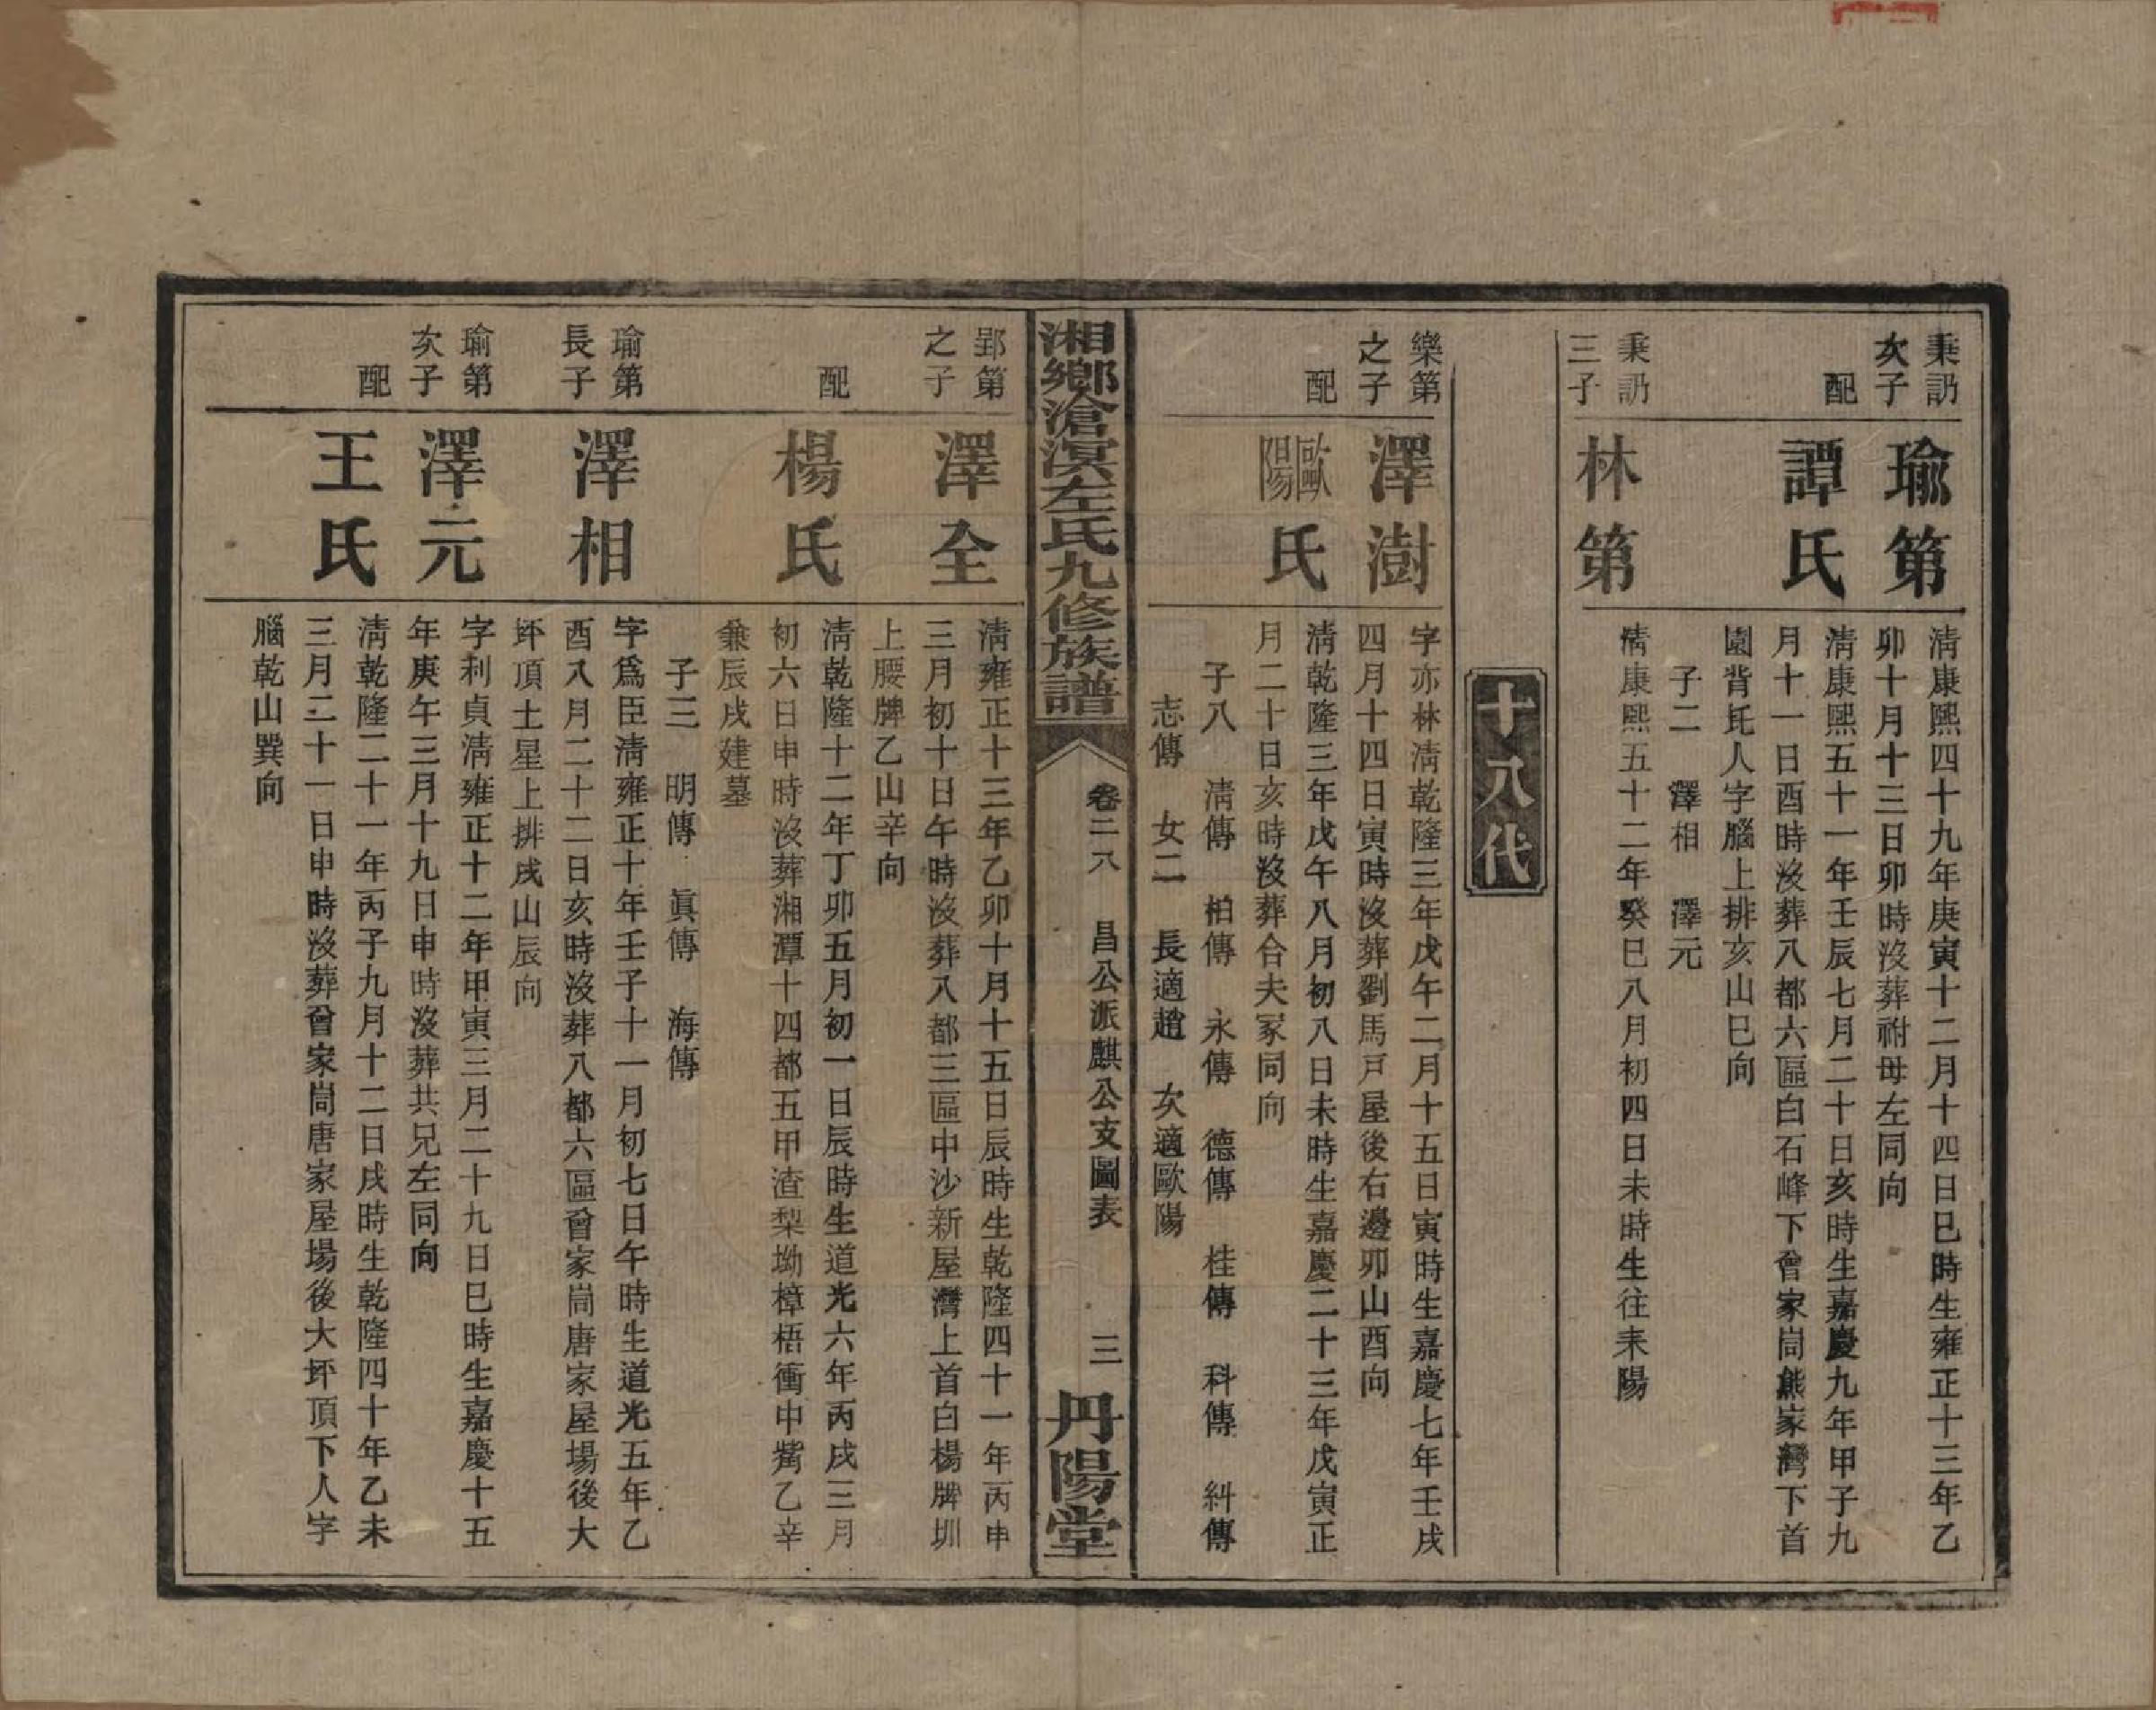 秉訒
次子
瑜第
清康熙四十九年庚寅十二月十四日巳時生雍正十三年乙
卯十月十三日卯時沒葬祔母左同向
配
譚氏
清康熙五十一年壬辰七月二十日亥時生嘉慶九年甲子九
月十一日酉時沒葬八都六區白石峰下曾家峝熊家灣下首
園背托人字腦上排亥山巳向
子二　澤相　澤元
秉訒
三子
林第
清康熙五十二年癸巳八月初四日未時生往耒陽
十八代
樂第
之子
澤澍
字亦林清乾隆三年戊午二月十五日寅時生嘉慶七年壬戌
四月十四日寅時沒葬劉馬戸屋後右邊卯山酉向
配
歐陽氏
清乾隆三年戊午八月初八日未時生嘉慶二十三年戊寅正
月二十日亥時沒葬合夫冢同向
子八　清傳　柏傳　永傳　德傳　桂傳　科傳　糾傳
志傳　女二　長適趙　次適歐陽
湘鄉滄溟左氏九修族譜
卷二八　昌公派麒公支圖表　三
丹陽堂
郢第
之子
澤全
清雍正十三年乙卯十月十五日辰時生乾隆四十一年丙申
三月初十日午時沒葬八都三區中沙新屋灣上首白楊牌圳
上腰牌乙山辛向
配
楊氏
清乾隆十二年丁卯五月初一日辰時生道光六年丙戌三月
初六日申時沒葬湘潭十四都五甲渣梨坳樟梧衝中觜乙辛
兼辰戌建墓
子三　明傳　眞傳　海傳
瑜第
長子
澤相
字爲臣清雍正十年壬子十一月初七日午時生道光五年乙
酉八月二十二日亥時沒葬八都六區曾家峝唐家屋場後大
坪頂土星上排戌山辰向
瑜第
次子
澤元
字利貞清雍正十二年甲寅三月二十九日巳時生嘉慶十五
年庚午三月十九日申時沒葬共兄左同向
配
王氏
清乾隆二十一年丙子九月十二日戌時生乾隆四十年乙未
三月二十一日申時沒葬曾家峝唐家屋場後大坪頂下人字
腦乾山巽向